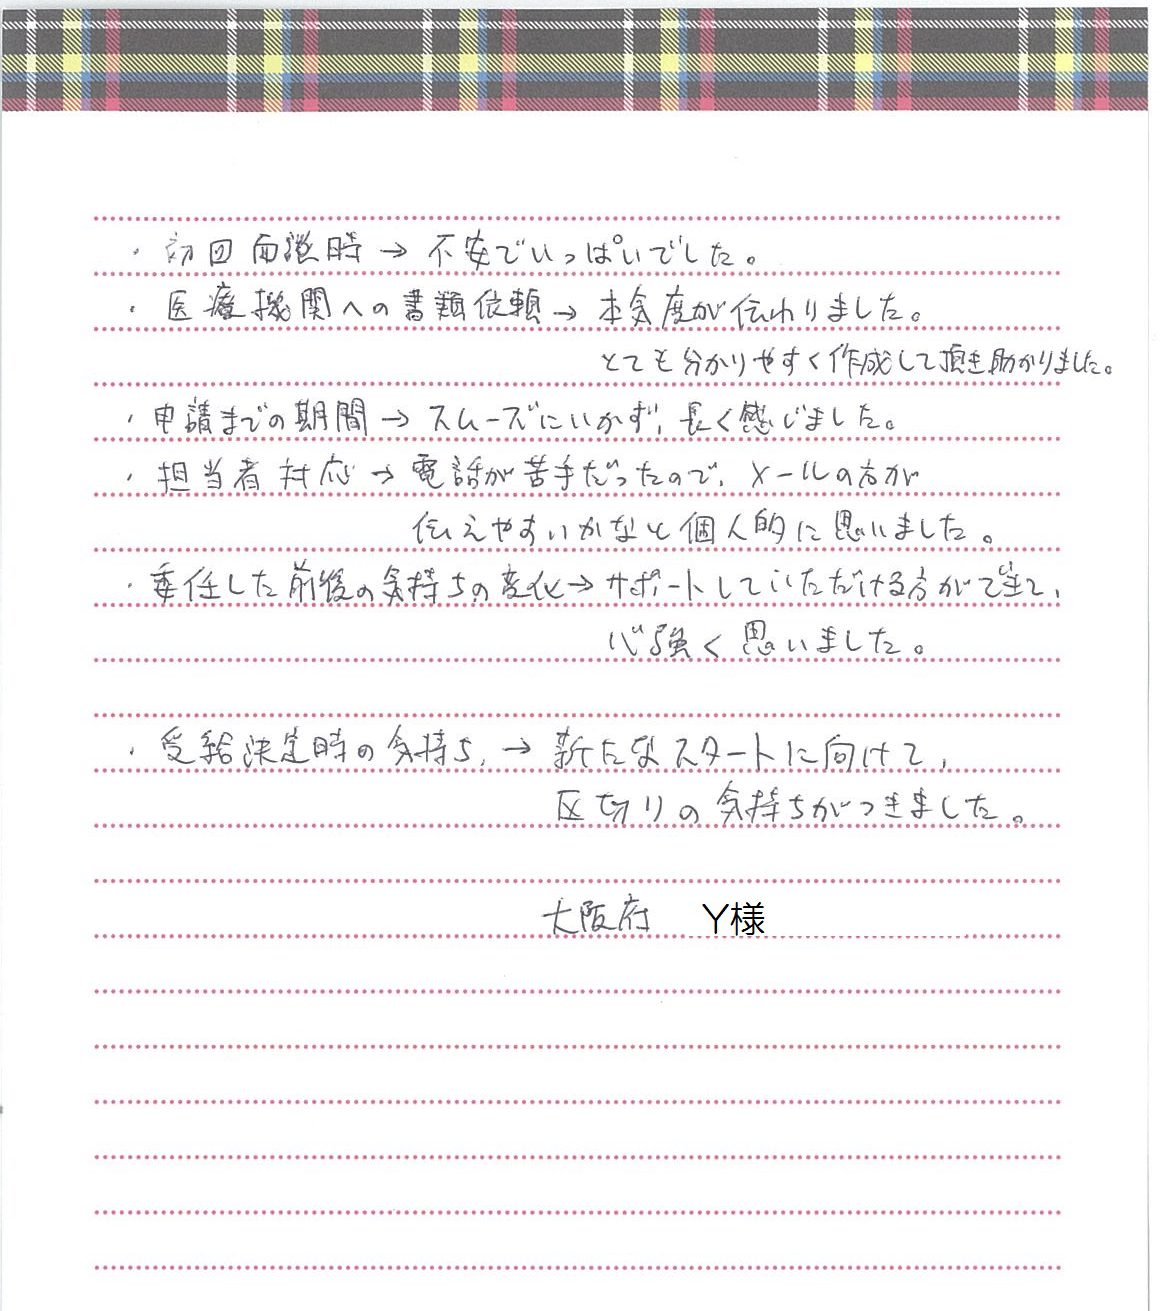 ・初回面談時→不安でいっぱいでした。
・医療機関への書類依頼→本気度が伝わりました。
とても分かりやすく作成して頂き助かりました。
・申請までの期間→スムーズにいかず、長く感じました。
・担当者対応→電話が苦手だったので、メールの方が
伝えやすいかなと個人的に思いました。
・委任した前後の気持ちの変化→サポートしていただける方ができて、
心強く思いました。
・受給決定時の気持ち、→新たなスタートに向けて、
区切りの気持ちがつきました。
大阪府 Y様